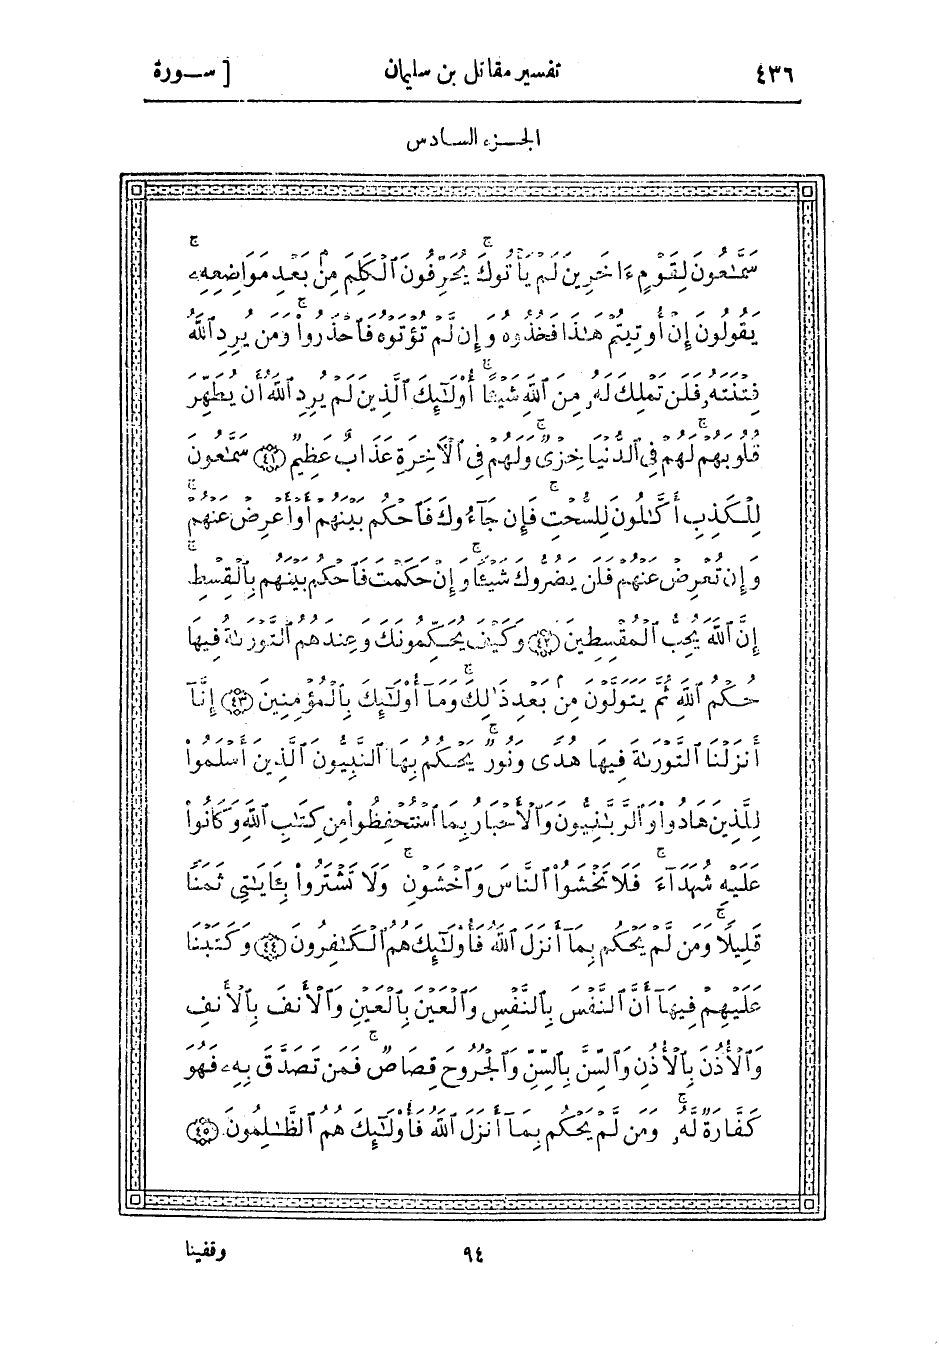 ٤٣٦ تفسير مقاتل بن سليمان [ سـورة
الجـزء السادس
سَمَّٰعُونَ لِقَوْمٍ ءَاخَرِينَ لَمْ يَأْتُوكَ ۖ يُحَرِّفُونَ ٱلْكَلِمَ مِنۢ بَعْدِ مَوَاضِعِهِۦ ۖ
يَقُولُونَ إِنْ أُوتِيتُمْ هَٰذَا فَخُذُوهُ وَإِن لَّمْ تُؤْتَوْهُ فَٱحْذَرُوا۟ ۚ وَمَن يُرِدِ ٱللَّهُ
فِتْنَتَهُۥ فَلَن تَمْلِكَ لَهُۥ مِنَ ٱللَّهِ شَيْـًٔا ۚ أُو۟لَٰٓئِكَ ٱلَّذِينَ لَمْ يُرِدِ ٱللَّهُ أَن يُطَهِّرَ
قُلُوبَهُمْ ۚ لَهُمْ فِى ٱلدُّنْيَا خِزْىٌ ۖ وَلَهُمْ فِى ٱلْءَاخِرَةِ عَذَابٌ عَظِيمٌ ﴿٤١﴾ سَمَّٰعُونَ
لِلْكَذِبِ أَكَّٰلُونَ لِلسُّحْتِ ۚ فَإِن جَآءُوكَ فَٱحْكُم بَيْنَهُمْ أَوْ أَعْرِضْ عَنْهُمْ ۖ
وَإِن تُعْرِضْ عَنْهُمْ فَلَن يَضُرُّوكَ شَيْـًٔا ۖ وَإِنْ حَكَمْتَ فَٱحْكُم بَيْنَهُم بِٱلْقِسْطِ ۚ
إِنَّ ٱللَّهَ يُحِبُّ ٱلْمُقْسِطِينَ ﴿٤٢﴾ وَكَيْفَ يُحَكِّمُونَكَ وَعِندَهُمُ ٱلتَّوْرَىٰةُ فِيهَا
حُكْمُ ٱللَّهِ ثُمَّ يَتَوَلَّوْنَ مِنۢ بَعْدِ ذَٰلِكَ ۚ وَمَآ أُو۟لَٰٓئِكَ بِٱلْمُؤْمِنِينَ ﴿٤٣﴾ إِنَّآ
أَنزَلْنَا ٱلتَّوْرَىٰةَ فِيهَا هُدًى وَنُورٌ ۚ يَحْكُمُ بِهَا ٱلنَّبِيُّونَ ٱلَّذِينَ أَسْلَمُوا۟
لِلَّذِينَ هَادُوا۟ وَٱلرَّبَّٰنِيُّونَ وَٱلْأَحْبَارُ بِمَا ٱسْتُحْفِظُوا۟ مِن كِتَٰبِ ٱللَّهِ وَكَانُوا۟
عَلَيْهِ شُهَدَآءَ ۚ فَلَا تَخْشَوُا۟ ٱلنَّاسَ وَٱخْشَوْنِ ۚ وَلَا تَشْتَرُوا۟ بِـَٔايَٰتِى ثَمَنًا
قَلِيلًا ۚ وَمَن لَّمْ يَحْكُم بِمَآ أَنزَلَ ٱللَّهُ فَأُو۟لَٰٓئِكَ هُمُ ٱلْكَٰفِرُونَ ﴿٤٤﴾ وَكَتَبْنَا
عَلَيْهِمْ فِيهَآ أَنَّ ٱلنَّفْسَ بِٱلنَّفْسِ وَٱلْعَيْنَ بِٱلْعَيْنِ وَٱلْأَنفَ بِٱلْأَنفِ
وَٱلْأُذُنَ بِٱلْأُذُنِ وَٱلسِّنَّ بِٱلسِّنِّ وَٱلْجُرُوحَ قِصَاصٌ ۚ فَمَن تَصَدَّقَ بِهِۦ فَهُوَ
كَفَّارَةٌ لَّهُۥ ۚ وَمَن لَّمْ يَحْكُم بِمَآ أَنزَلَ ٱللَّهُ فَأُو۟لَٰٓئِكَ هُمُ ٱلظَّٰلِمُونَ ﴿٤٥﴾
٩٤ وقفينا